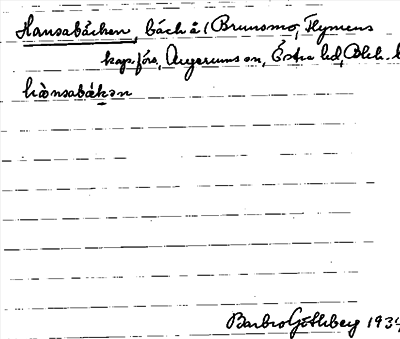 Hansabäcken, bäck å (Brunsmo, Flymens
kap.förs, Augerums sn, Östra hd, Blek.
hansabäkən
Barbro Göthberg 1934